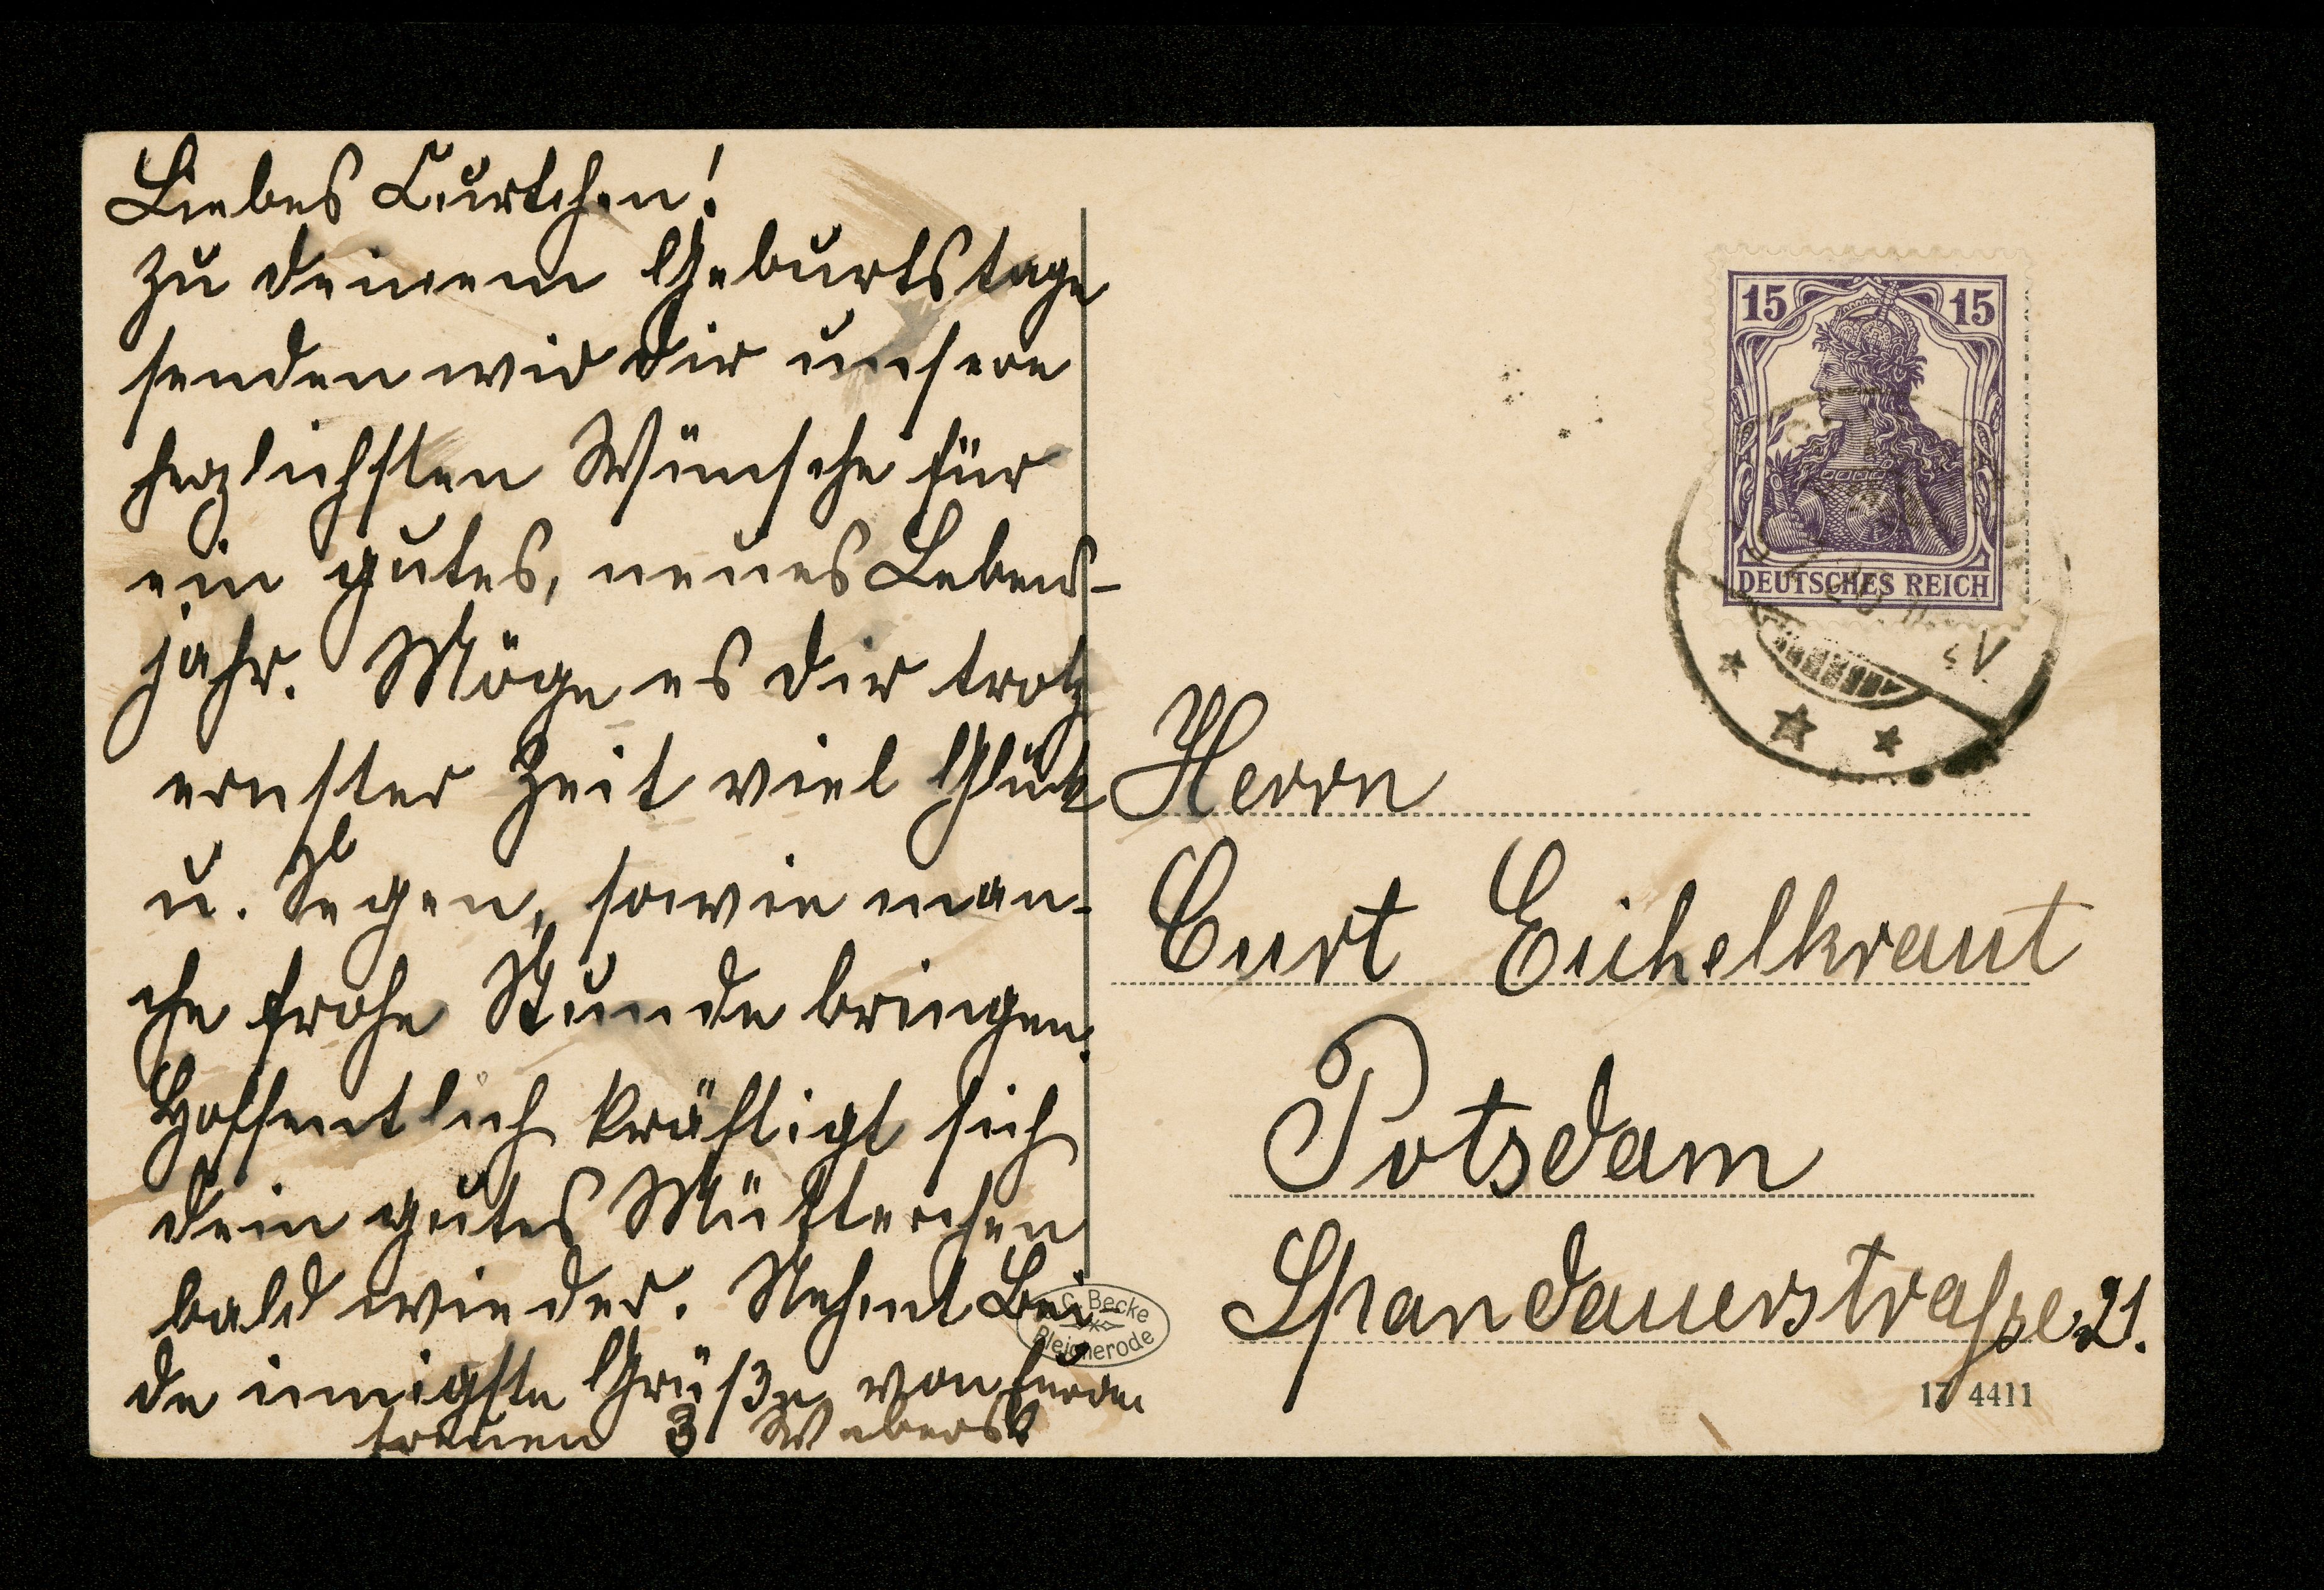 Liebes Curtchen!
Zu deinem Geburtstage
senden wir dir unsere
herzlichsten Wünsche für
ein gutes, neues Lebens-
jahr. Möge es dir trotz
ernster Zeit viel Glück
u. Segen, sowie man-
che frohe Stunde bringen.
Hoffentlich kräftigt sich
dein gutes Mütterchen
bald wieder. Nehmt Bei-
de innigste Grüße von Euren
treuen 3 Webers.
15 15
DEUTSCHES REICH
Herrn
Curt Eichelkraut
Potsdam
Spandauerstrasse 21.
C. Becke
Bleicherode
17 4411